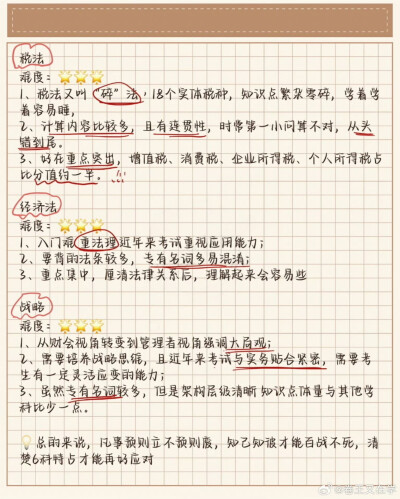 税法
难度：🌟🌟🌟
1、税法又叫“碎”法，18个实体税种，知识点繁杂零碎，学着学
着容易睡，
2、计算内容比较多，且有连贯性，时常第一小问算不对，从头
错到尾。
3、好在重点突出，增值税、消费税、企业所得税、个人所得税占
比分值约一半。
经济法
难度：🌟🌟🌟
1、入门难重法理近年来考试重视应用能力；
2、要背的法条较多，专有名词多易混淆；
3、重点集中，厘清法律关系后，理解起来会容易些
战略
难度：🌟🌟🌟
1、从财会视角转变到管理者视角强调大局观；
2、需要培养战略思维，且近年来考试与实务贴合紧密，需要考
生有一定灵活应变的能力；
3、虽然专有名词较多，但是架构层级清晰知识点体量与其他学
科比少一点。
💡总的来说，凡事预则立不预则废，知己知彼才能百战不死，清
楚6科特点才能再好应对